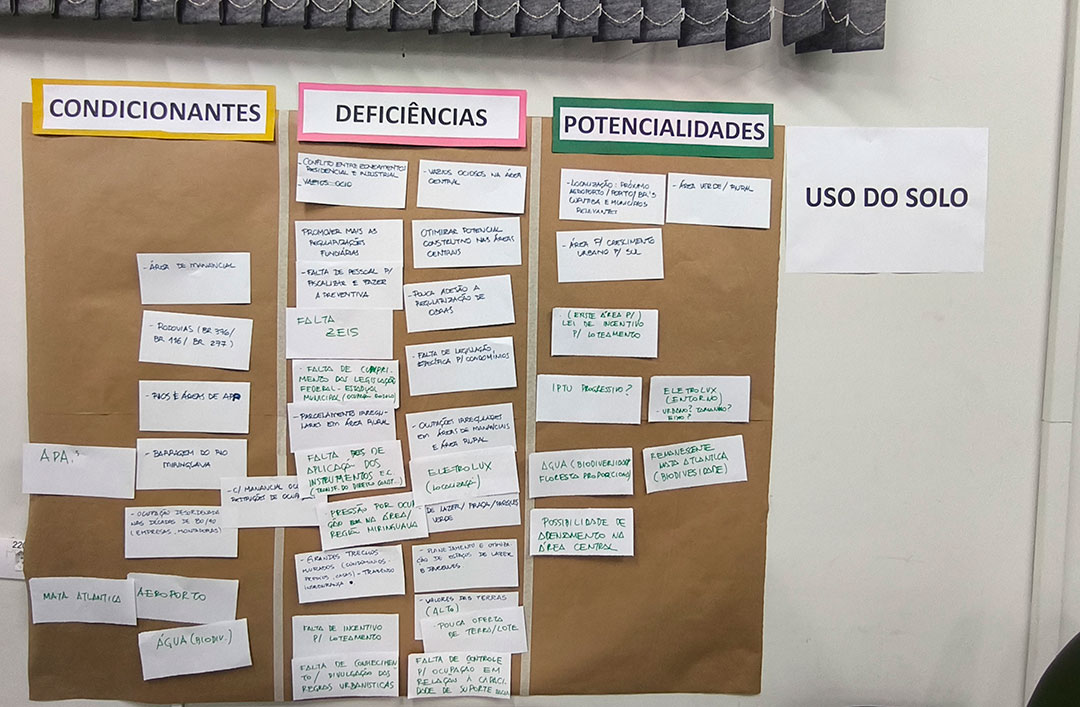 CONDICIONANTES
- ÁREA DE MANANCIAL
- RODOVIAS (BR 376/
BR 116/ BR 277)
- RIOS E ÁREAS DE APP
APA
- BARRAGEM DO RIO
MIRINGUAVA
- C/ MANANCIAL
- OCUPAÇÃO DESORDENADA
NAS DÉCADAS DE 80/90
(EMPRESAS, MONTADORAS)
MATA ATLANTICA
AEROPORTO
ÁGUA (BIODIV.)
DEFICIÊNCIAS
- CONFLITO ENTRE ZONEAMENTO
RESIDENCIAL E INDUSTRIAL
- VAZIOS
- VAZIOS OCIOSOS NA ÁREA
CENTRAL
PROMOVER MAIS AS
REGULARIZAÇÕES
FUNDIÁRIAS
OTIMIRAR POTENCIAL
CONSTRUTIVO NAS ÁREAS
CENTRAIS
- FALTA DE PESSOAL P/
FISCALIZAR E FAZER
A PREVENTIVA
- POUCA ADESÃO A
REGULARIZAÇÃO DE
OBRAS
FALTA
ZEIS
- FALTA DE LEGISLAÇÃO
ESPECÍFICA P/ CONDOMÍNIOS
- FALTA DE CUMPRI-
MENTO DAS LEGISLAÇÃO
FEDERAL - ESTADUAL
MUNICIPAL
- PARCELAMENTO IRREGU-
LARES EM ÁREA RURAL
- OCUPAÇÕES IRREGULARES
EM ÁREAS DE MANANCIAIS
E ÁREA RURAL
FALTA DE
APLICAÇÃO DOS
INSTRUMENTOS
(TRANSF. DO DIREITO CONST...)
ELETROLUX
PRESSÃO POR OCU
PAÇÃO NA ÁREA/
REGIÃO MIRINGUAVA
DE LAZER/ PRAÇA/ PARQUES
VERDE
- GRANDES TRECHOS
MURADOS (CONDOMINIOS
- TRAZENDO
INSEGURANÇA
- PLANEJAMENTO E
DE ESPAÇOS DE LAZER
- VALORES DAS TERRAS
(ALTO)
- POUCA OFERTA
DE TERRA/LOTE
FALTA DE INCENTIVO
P/ LOTEAMENTO
FALTA DE CONHECIMEN
TO/ DIVULGAÇÃO DAS
REGRAS URBANISTICAS
FALTA DE CONTROLE
P/ OCUPAÇÃO EM
RELAÇÃO À CAPACI
DADE DE SUPORTE
POTENCIALIDADES
- LOCALIZAÇÃO: PRÓXIMO
AEROPORTO/PORTO/BR'S
CURITIBA E MUNICÍPIOS
RELEVANTES
- ÁREA VERDE/ RURAL
- ÁREA P/ CRESCIMENTO
URBANO P/ SUL
- (EXISTE ÁREA P/)
LEI DE INCENTIVO
P/ LOTEAMENTO
IPTU PROGRESSIVO?
ELETROLUX
(ENTORNO)
- URBANO? TAMANHO?
EIXO?
ÁGUA (BIODIVERSIDADE
FLORESTA PROPORCIONA)
REMANESCENTE
MATA ATLANTICA
(BIODIVESIDADE)
POSSIBILIDADE DE
ADENSAMENTO NA
ÁREA CENTRAL
USO DO SOLO